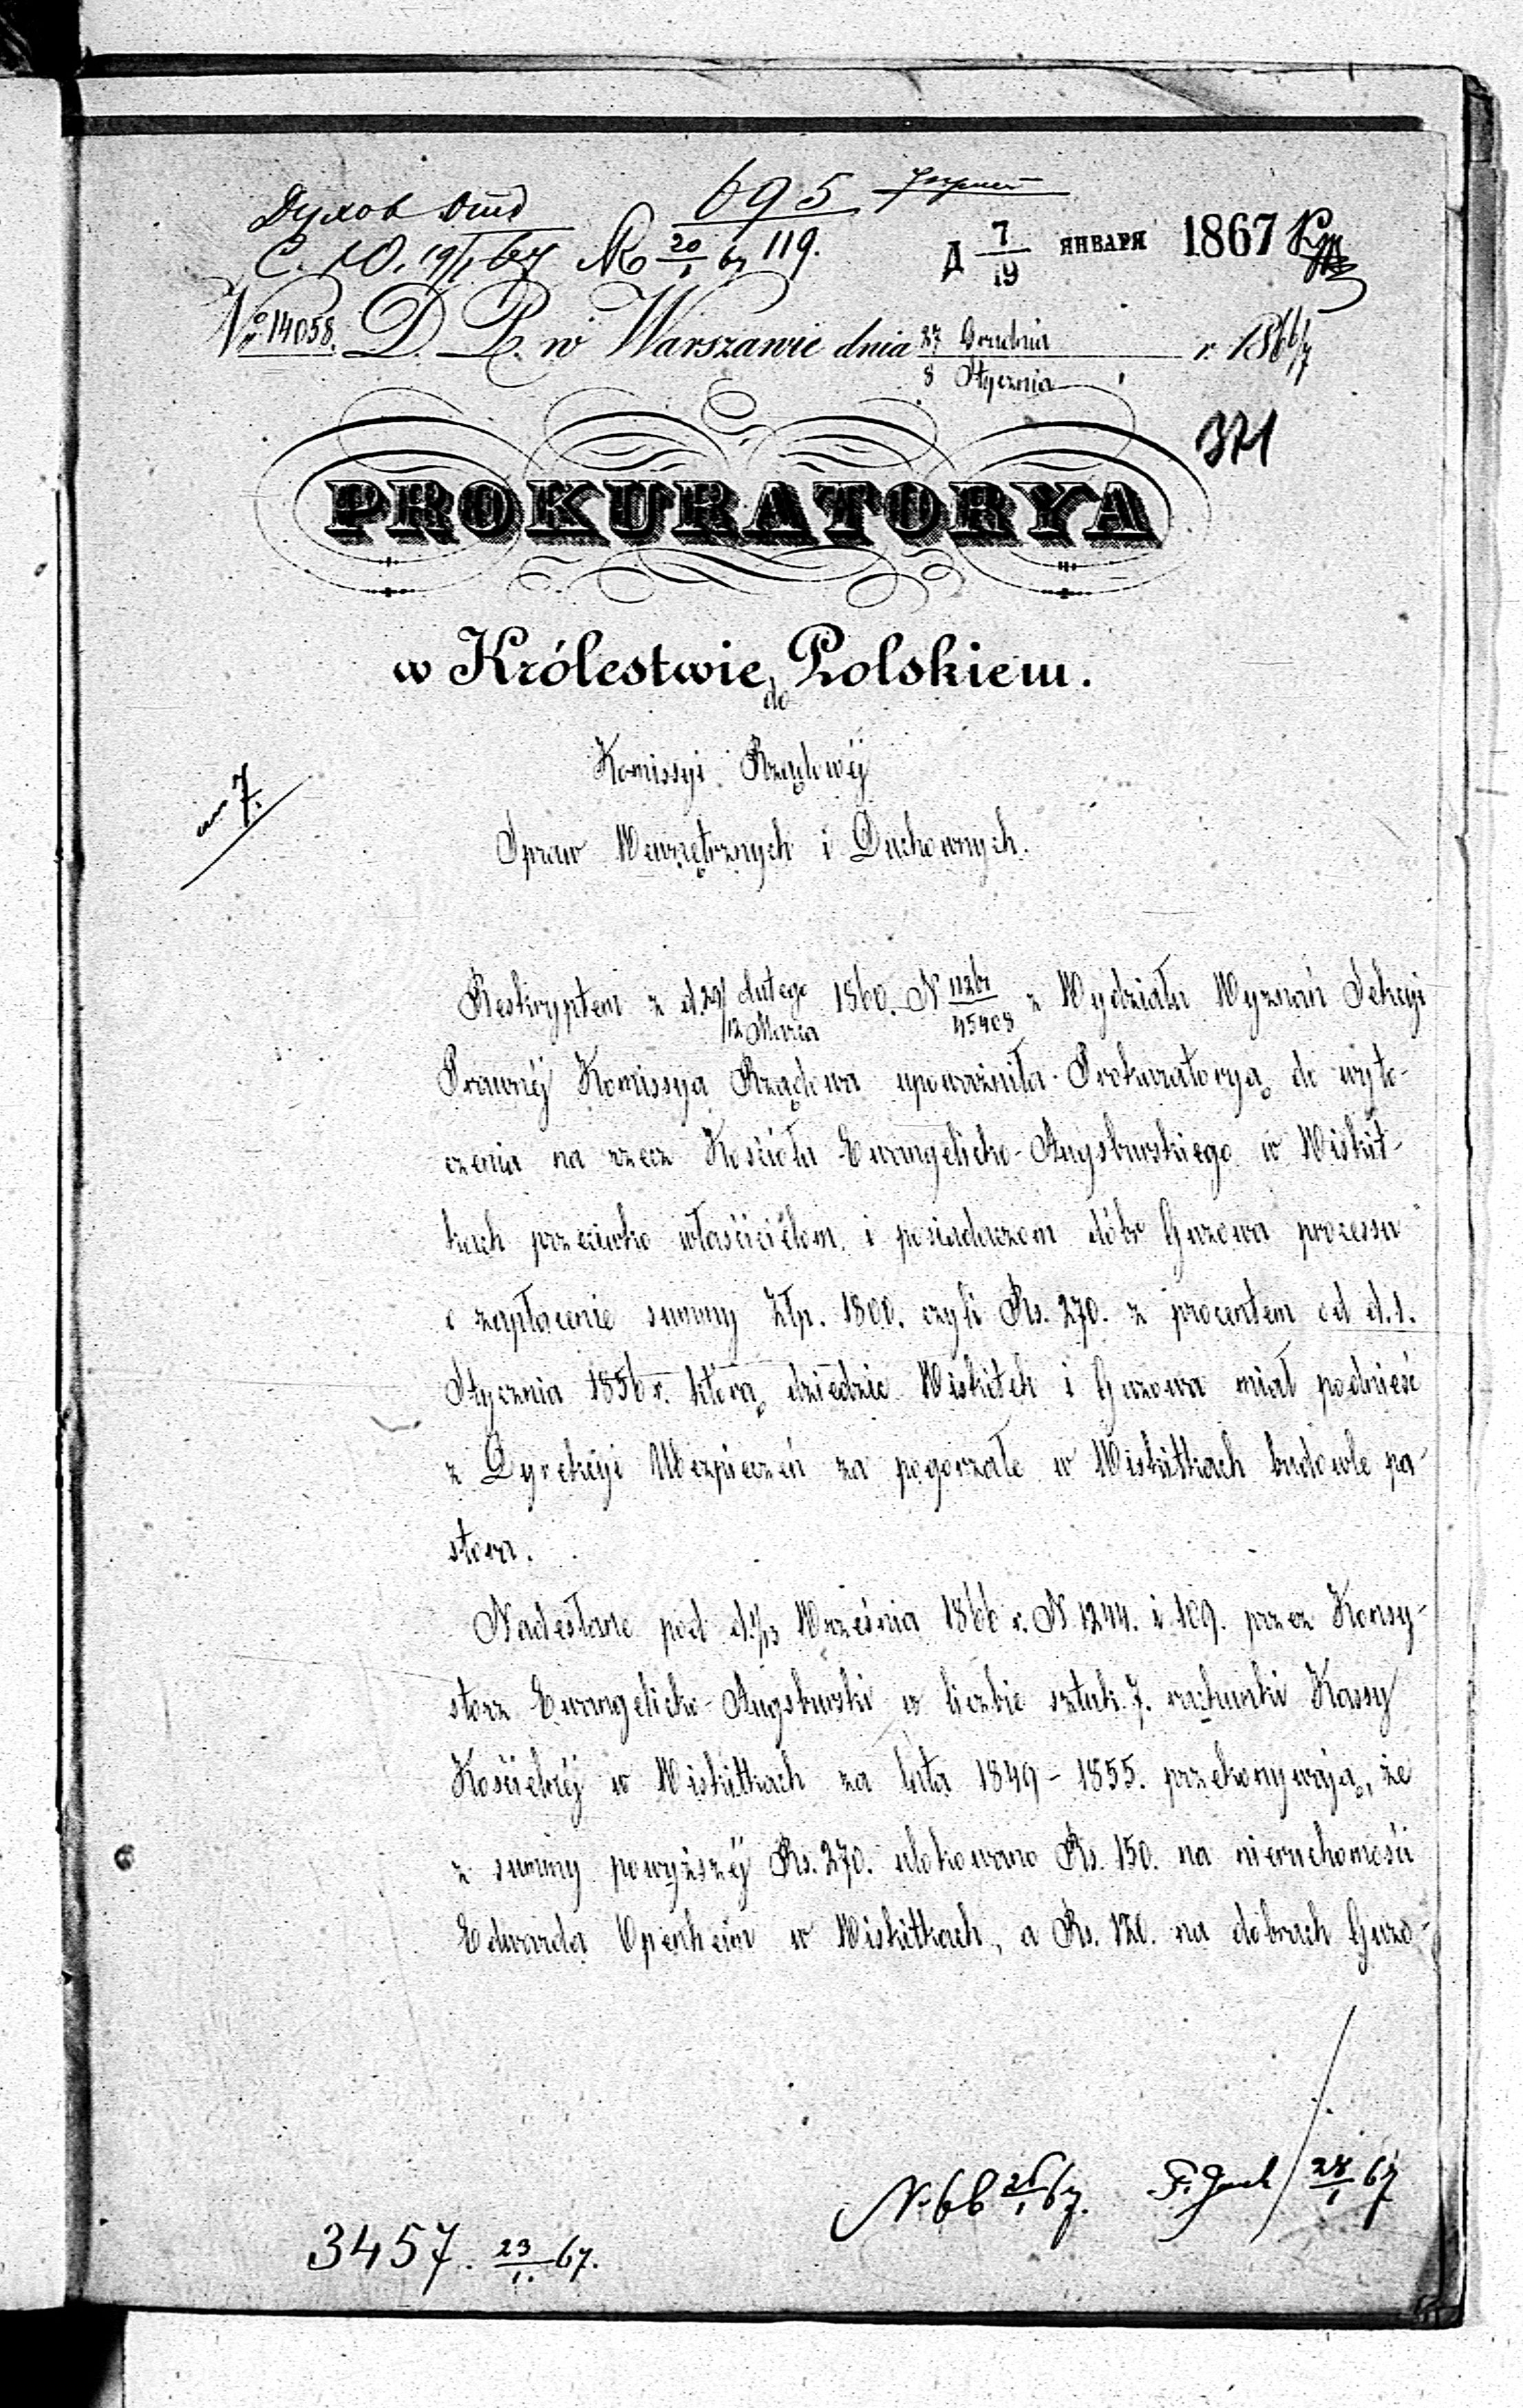 Духов Отд 695
С. Ю. 19/I 67 № 20/I 67 119. Д 7/19 ЯНВАРЯ 1867
№ 14058. D. P. w Warszawie dnia 27 Grudnia / 8 Stycznia r. 1866/7
371
PROKURATORYA
w Królestwie Polskiem.
do
Komissyi Rządowéj
Spraw Wewnętrznych i Duchownych.
7.
Reskryptem z d. 29 Lutego / 12 Marca 1860. N z Wydziału Wyznań Sekcyi
Prawnéj Komissya Rządowa upoważniła Prokuratoryą do wyto-
czenia na rzecz Kościoła Ewangelicko-Augsburskiego w Wiskit-
kach przeciwko właścicielom i posiadaczom dóbr Guzowa processu
o zapłacenie summy Złp. 1800. czyli Rs. 270. z procentem od d. 1.
Stycznia 1856 r. którą dziedzic Wiskitek i Guzowa miał podnieść
z Dyrekcyi Ubezpieczeń za pogorzałe w Wiskitkach budowle pa-
stora.
Nadesłane pod d. 1/13 Września 1866 r. N 1244. i 109. przez Konsy-
storz Ewangelicko-Augsburski w liczbie sztuk 7. rachunki Kassy
Kościelnéj w Wiskitkach za lata 1849 - 1855. przekonywają, że
z summy powyższéj Rs. 270. ulokowano Rs. 150. na nieruchomości
Edwarda Openheim w Wiskitkach, a Rs. 120. na dobrach Guzo-
N 68 67. 28/I 67
3457. 23/I. 67.